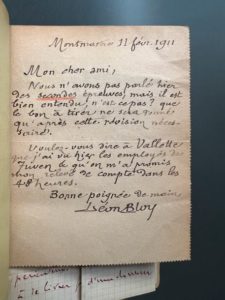 Montmartre 11 févr. 1911
Mon cher ami,
Nous n'avons pas parlé hier
des secondes épreuves, mais il est
bien entendu, n'est-ce pas? que
le bon à tirer ne sera donné
qu'après cette révision néces-
saire.
Voulez-vous dire à Vallette
que j'ai vu hier les employés de
Juven et qu'on m'a promis
mon relevé de compte dans les
48 heures.
Bonne poignée de main
Léon Bloy